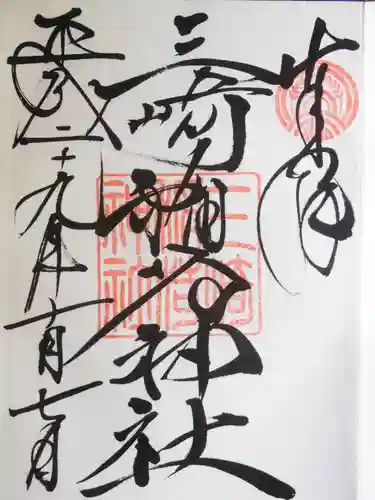 奉拝
三崎稲荷神社
平成二十九年十月七日
三崎
稲荷
神社